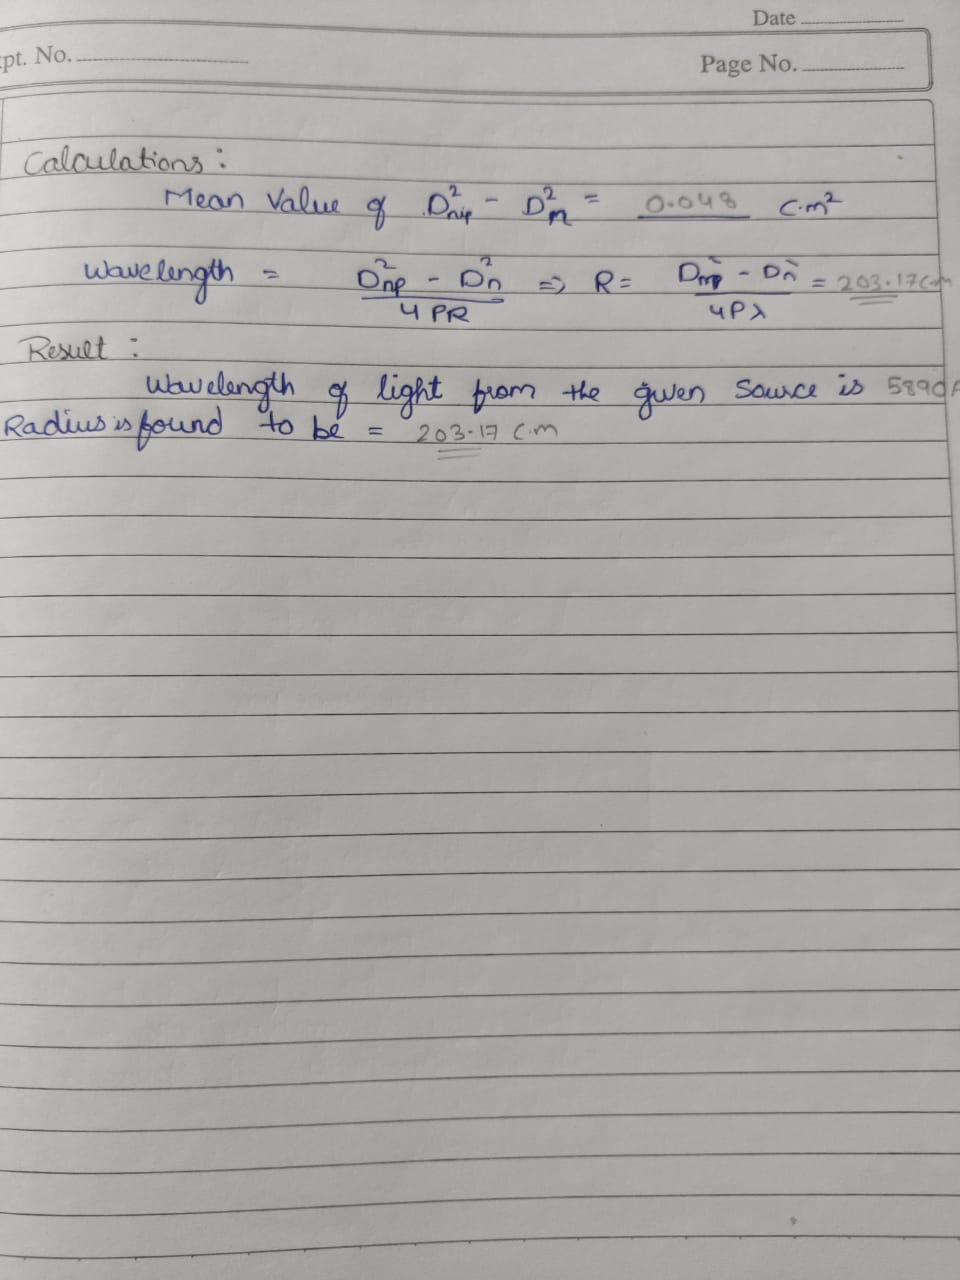 Date
pt. No.
Page No.
Calculations:
Mean Value of D²n+p - D²n = 0.048 c.m²
Wavelength = D²np - D²n / 4PR => R = D²np - D²n / 4Pλ = 203.17 c.m
Result:
Wavelength of light from the given Source is 5890A
Radius is found to be = 203.17 c.m